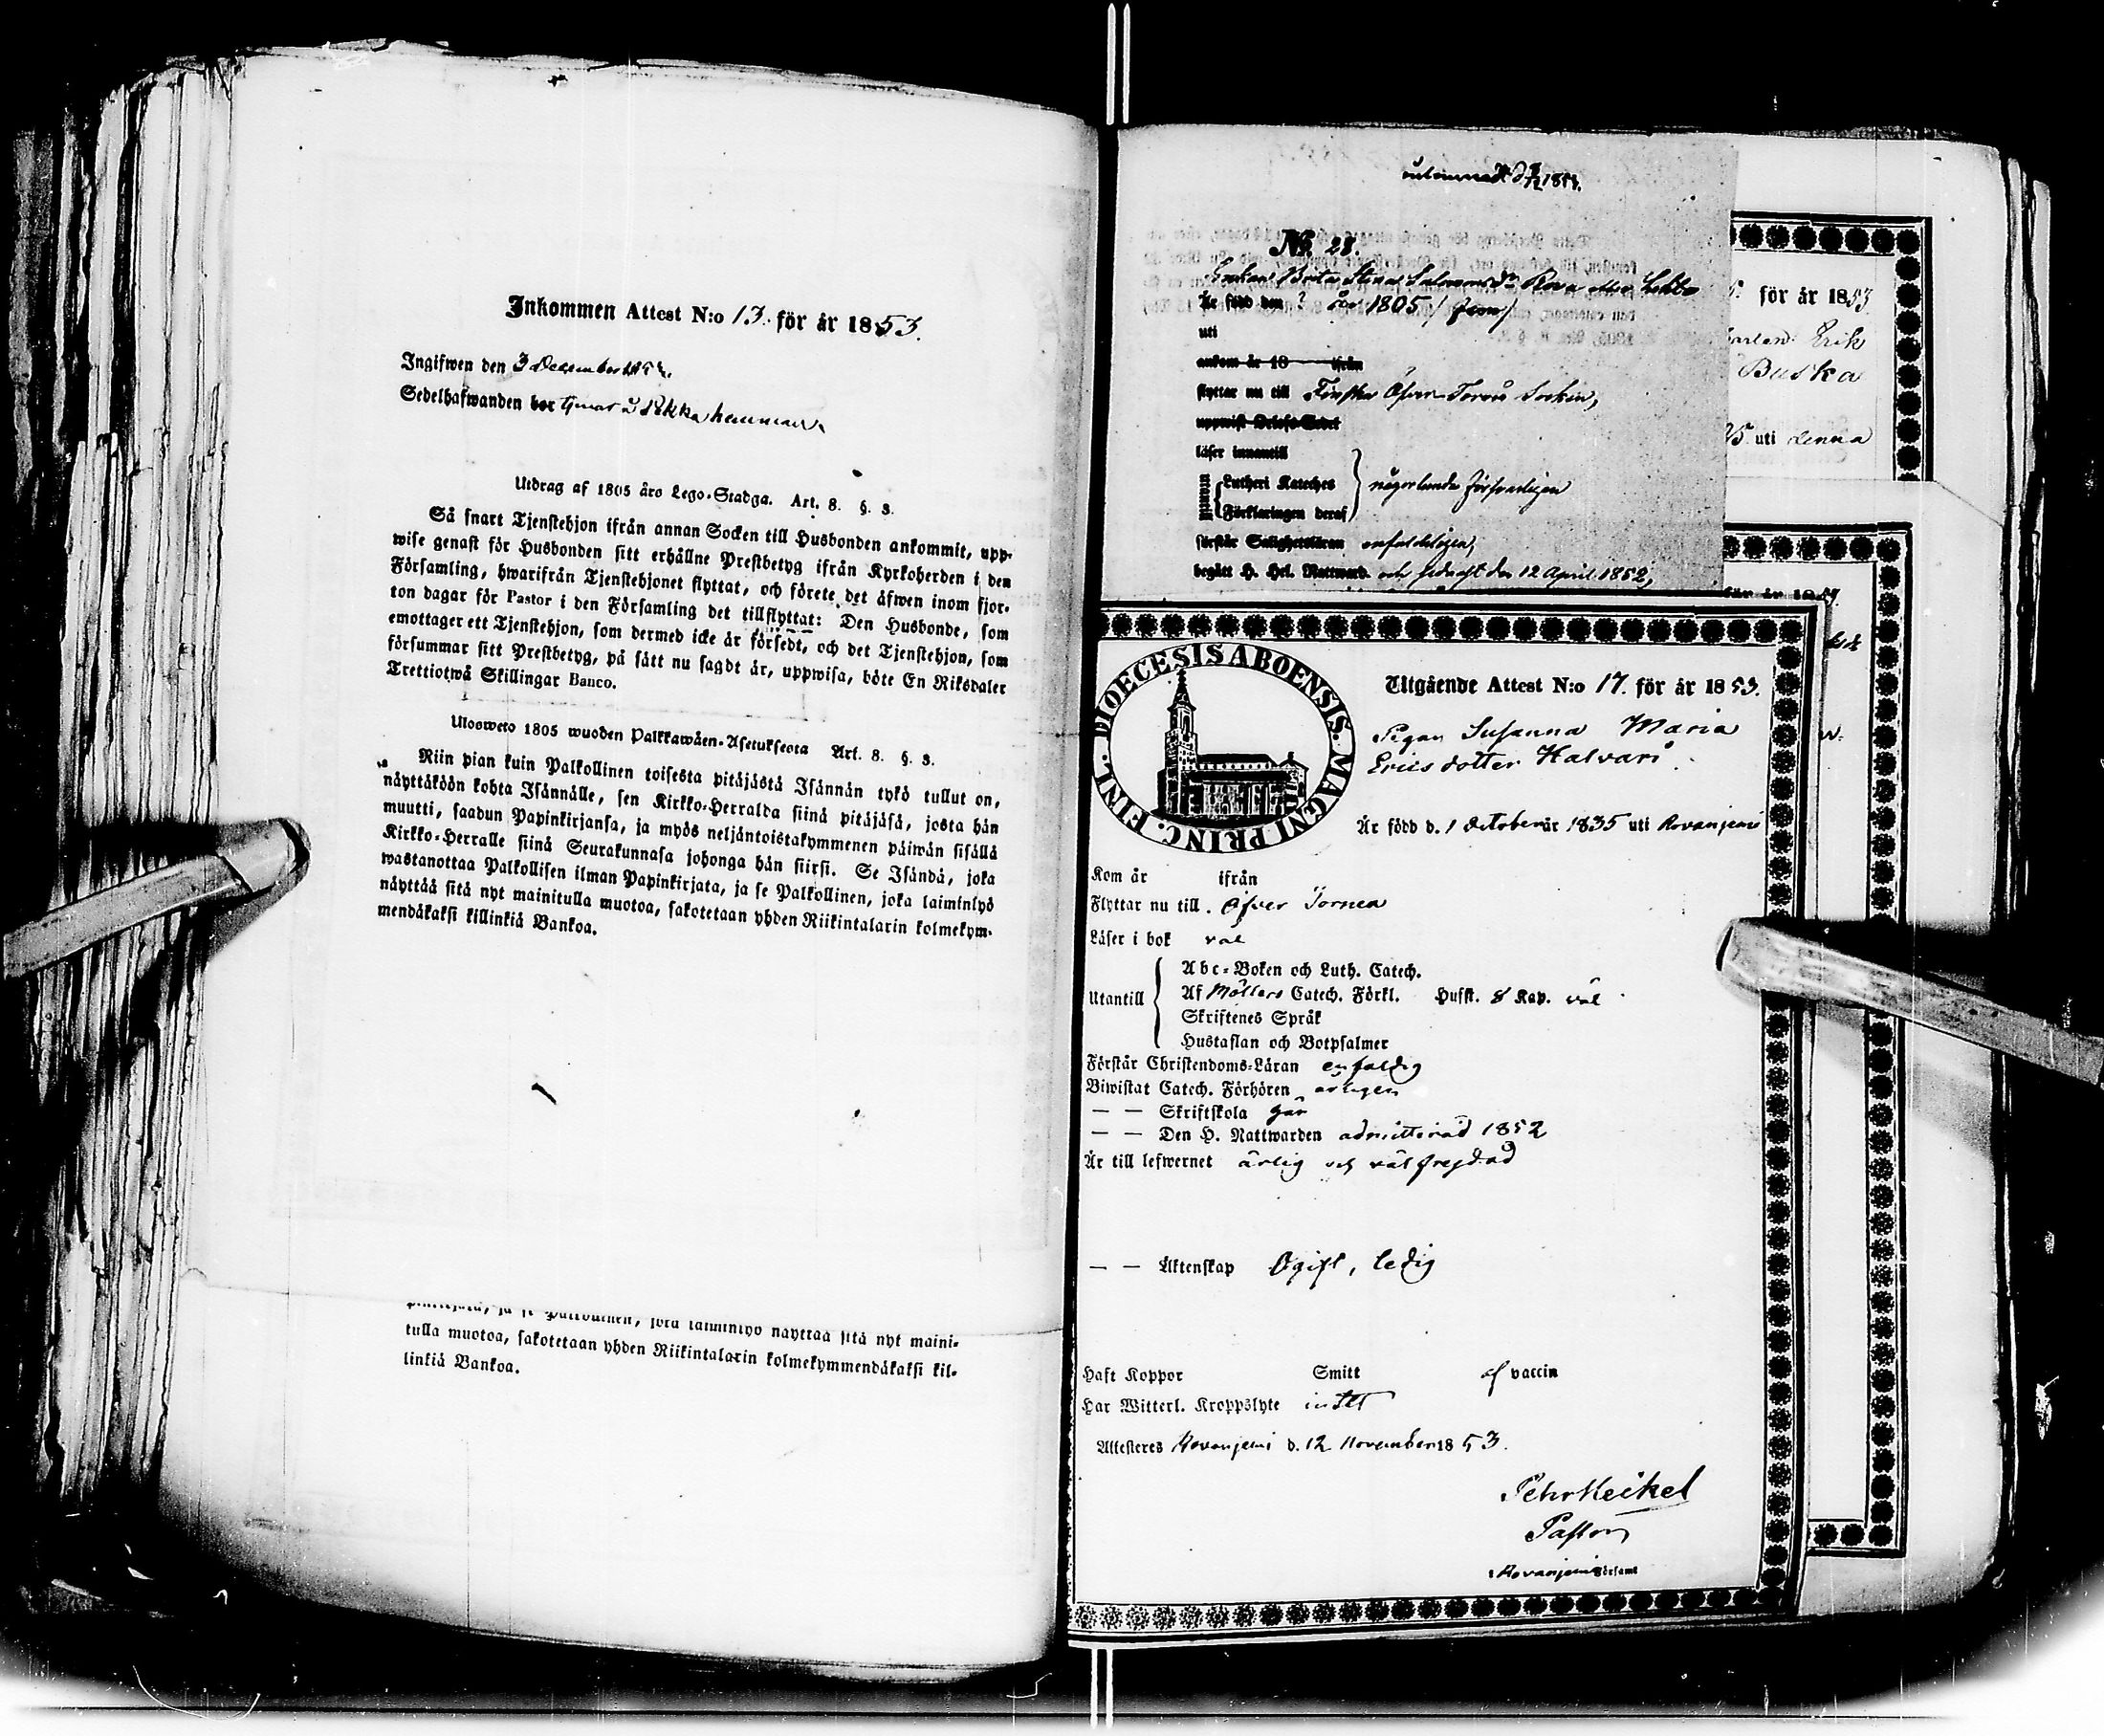 Inkommen Attest N:o 13. för år 1853.
Ingifwen den 3 December
Sedelhafwanden bor tjenar å hemman
Utdrag af 1805 års Lego-Stadga. Art. 8. §. 3.
Så snart Tjenstehjon ifrån annan Socken till Husbonden ankommit, upp-
wise genast för Husbonden sitt erhållne Prestbetyg ifrån Kyrkoherden i den
Församling, hwarifrån Tjenstehjonet flyttat, och förete det äfwen inom fjor-
ton dagar för Pastor i den Församling det tillflyttat: Den Husbonde, som
emottager ett Tjenstehjon, som dermed icke är försedt, och det Tjenstehjon, som
försummar sitt Prestbetyg, på sätt nu sagdt är, uppwisa, böte En Riksdaler
Trettiotwå Skillingar Banco.
Ulosweto 1805 wuoden Palkkawäen-Asetuksesta Art. 8. §. 3.
Niin pian kuin Palkollinen toisesta pitäjästä Isännän tykö tullut on,
näyttäköön kohta Isännälle, sen Kirkko-Herralda siinä pitäjäsä, josta hän
muutti, saadun Papinkirjansa, ja myös neljäntoistakymmenen päiwän sisällä
Kirkko-Herralle siinä Seurakunnasa johonga hän siirsi. Se Isändä, joka
wastanottaa Palkollisen ilman Papinkirjata, ja se Palkollinen, joka laiminlyö
näyttää sitä nyt mainitulla muotoa, sakotetaan yhden Riikintalarin kolmekym-
mendäkaksi killinkiä Bankoa.
ja se Palkollinen, joka laiminlyö näyttää sitä nyt maini-
tulla muotoa, sakotetaan yhden Riikintalarin kolmekymmendäkaksi kil-
linkiä Bankoa.
No. 28.
Enkan Brita Stina Salomonsdr Rova eller
Är född den ? år 1805 / fem/
uti
ankom år 18 ifrån
flyttar nu till Finska Öfver Torneå Sockn,
uppwist Orlofs-Sedel
läser innantill
Lutheri Kateches
Förklaringen deraf
någorlunda försvarligen
förstår Salighetsläran enfaldeligen,
begått H. Hel. Nattward. och sednast den 12 April 1852,
för år 1853
Erik
Buska
uti denna
för år 18
Utgående Attest N:o 17. för år 1853.
DIOECESIS ABOENSIS. MAGNI PRINC. FINL.
Pigan Susanna Maria
Ericsdotter Halvari
Är född d. 1 October år 1835 uti Rovaniemi
Kom år ifrån
Flyttar nu till. Öfver Tornea
Läser i bok väl
Utantill
Abc-Boken och Luth. Catech.
Af Möllers Catech. Förkl. Hufst. 8 Kap. väl
Skriftenes Språk
Hustaflan och Botpsalmer
Förstår Christendoms-Läran enfaldig
Biwistat Catech. Förhören årligen
— — Skriftskola går
— — Den H. Nattwarden admitterad 1852
Är till lefwernet ärlig och väl frejdad
— — Äktenskap Ogift, ledig
Haft Koppor Smitt af vaccin
Har Witterl. Kroppslyte intet
Attesteras Rovanjemi d. 12 November 1853.
Pehr Heikel
Pastor
i Rovanjemi Församl